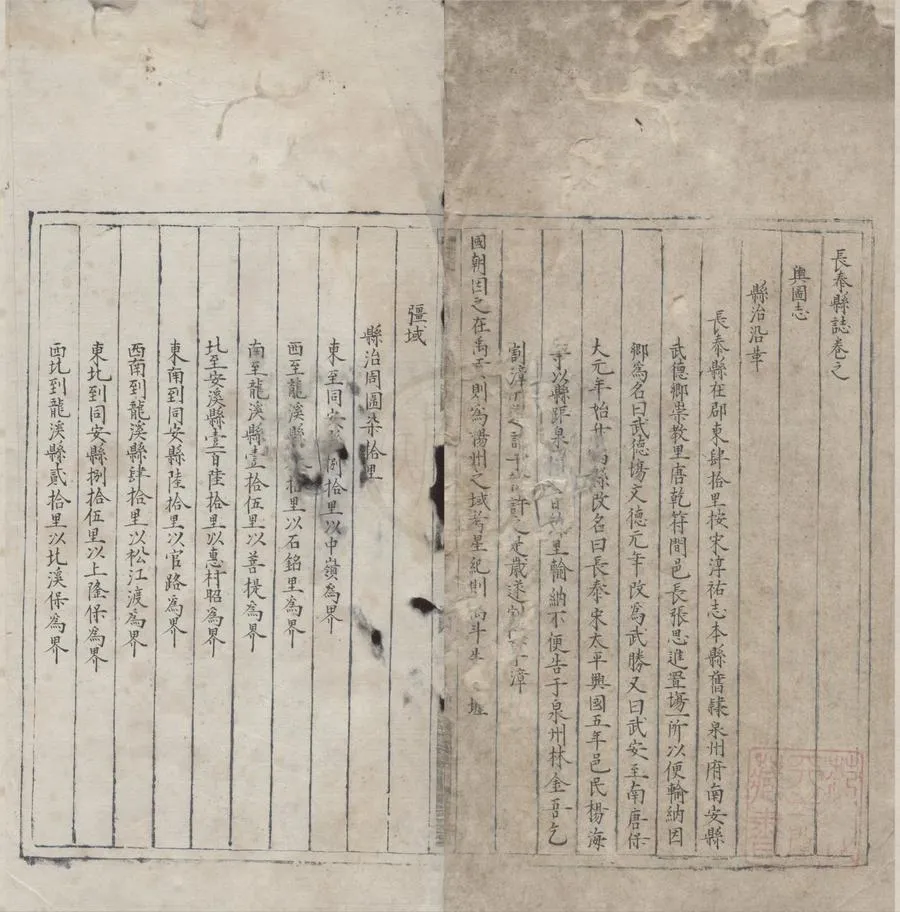 長泰縣誌卷之
輿圖志
縣治沿革
長泰縣在郡東肆拾里按宋淳祐志本縣舊隸泉州府南安縣
武德鄉崇教里唐乾符間邑長張思進置場一所以便輸納因
鄉爲名曰武德塲文德元年改爲武勝又曰武安至南唐保
大元年始 縣改名曰長泰宋太平興國五年邑民楊海
等以縣距泉 里輸納不便告于泉州林金吾乞
割漳 許 是歲遂 漳
國朝因之在禹 則爲揚州之域考星紀則 斗牛 墟
疆域
縣治周圍柒拾里
東至同安 捌拾里以中嶺爲界
西至龍溪縣 拾里以石銘里爲界
南至龍溪縣壹拾伍里以菩提爲界
北至安溪縣壹百陸拾里以惠村昭爲界
東南到同安縣陸拾里以官路爲界
西南到龍溪縣肆拾里以松江渡爲界
東北到同安縣捌拾伍里以上隆保爲界
西北到龍溪縣貳拾里以北溪保爲界